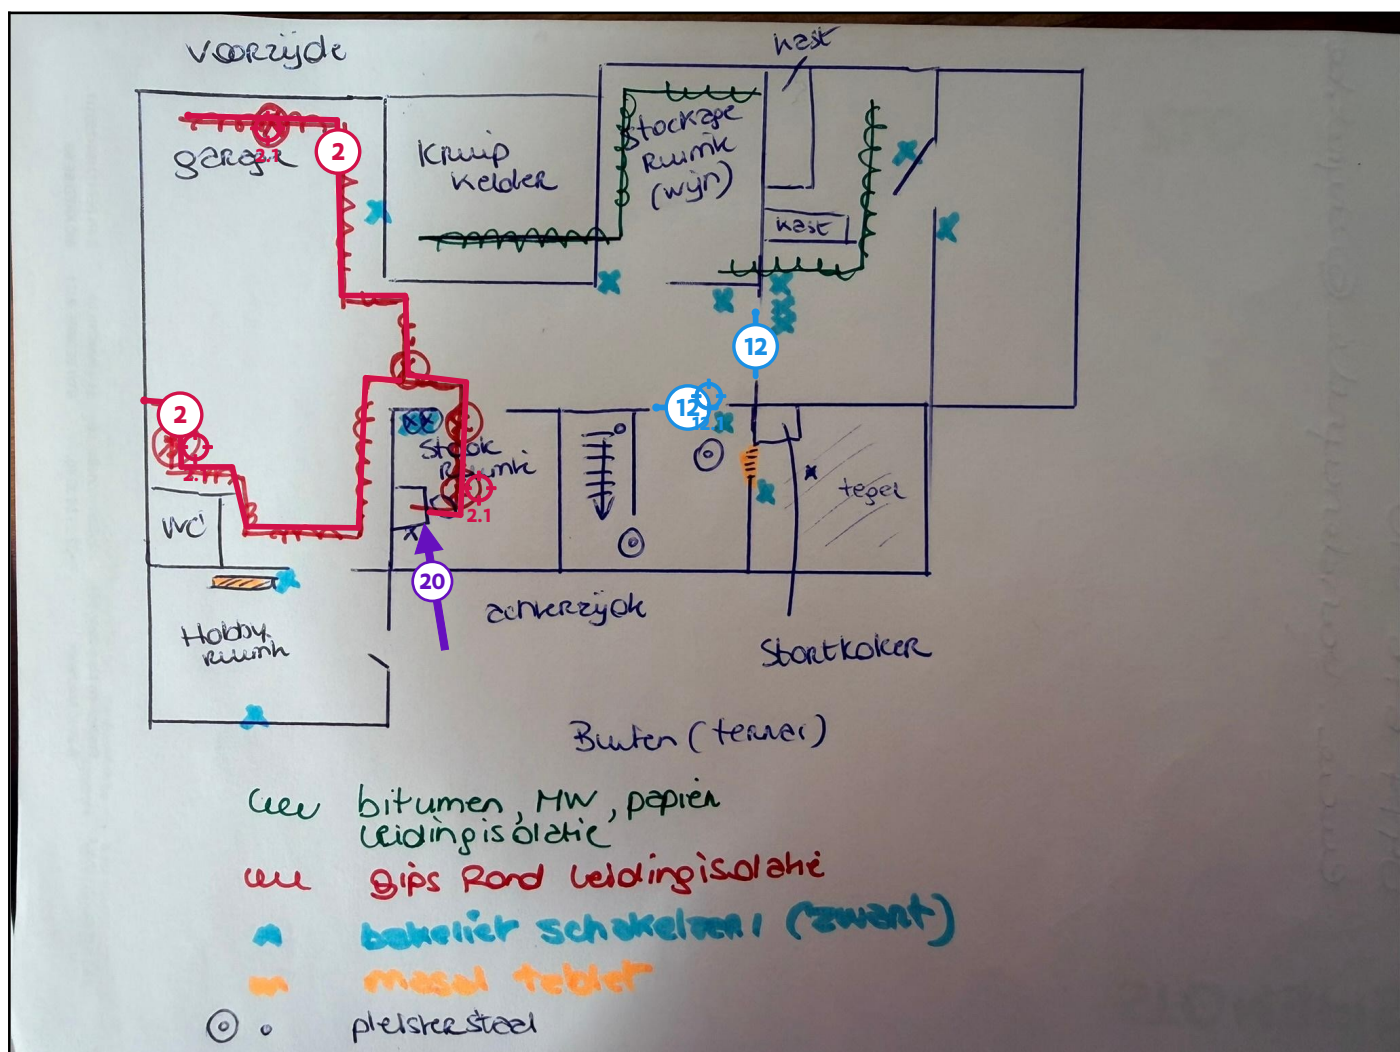 Voorzijde
kast
garage
2.1
2
Kruip
kelder
Stockage
Ruimte
(wijn)
kast
12
2
12
12.1
Stook
Ruimte
tegel
2.1
WC
20
achterzijde
Hobby
ruimte
Stortkoker
Buiten (terras)
bitumen, MW, papier
leidingisolatie
gips Rond leidingisolatie
bakeliet schakelaar (zwart)
masal tablet
pleisterstaal